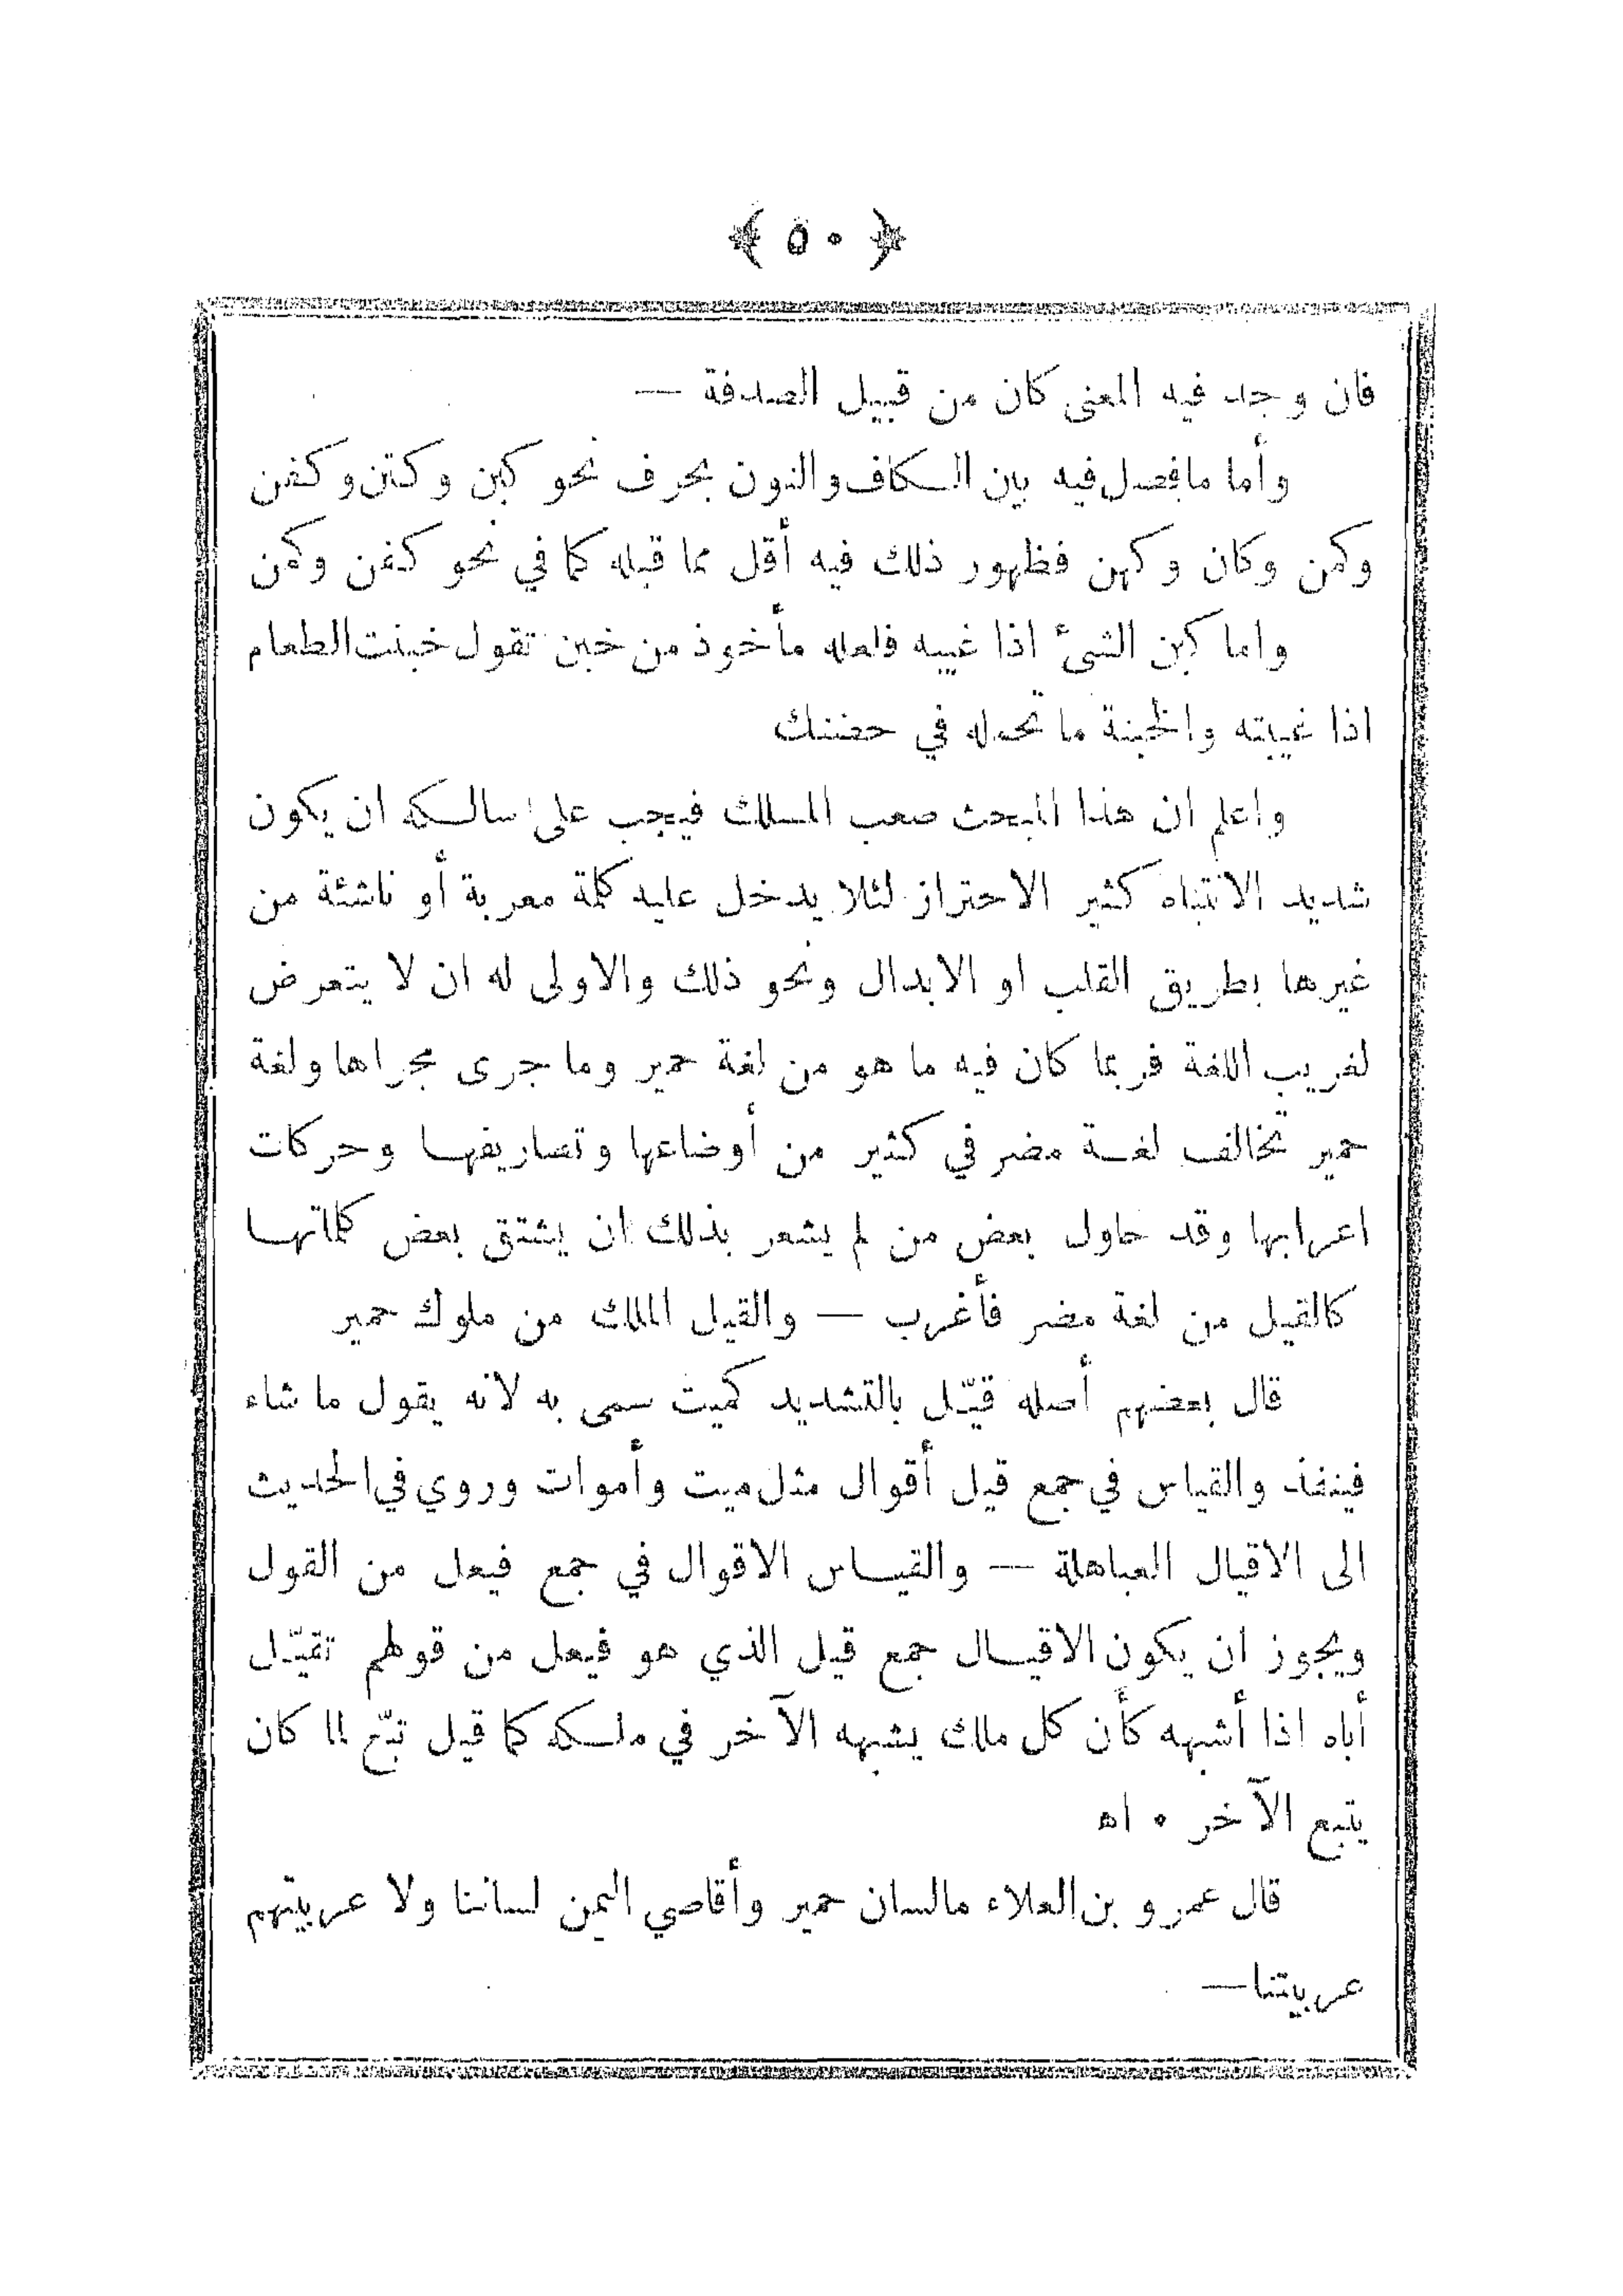 ﴿ ٥٠ ﴾
فان وجد فيه المعنى كان من قبيل الصدفة —
وأما مافصل فيه بين الكاف والنون بحرف نحو كبن وكتن وكفن
وكمن وكان وكهن فظهور ذلك فيه أقل مما قبله كما في نحو كفن وكمن
واما كبن الشئ اذا غيبه فلعله مأخوذ من خبن تقول خبنت الطعام
اذا غيبته والخبنة ما تحمله في حضنك
واعلم ان هذا المبحث صعب المسلك فيجب على سالكه ان يكون
شديد الانتباه كثير الاحتراز لئلا يدخل عليه كلمة معربة أو ناشئة من
غيرها بطريق القلب او الابدال ونحو ذلك والاولى له ان لا يتعرض
لغريب اللغة فربما كان فيه ما هو من لغة حمير وما جرى مجراها ولغة
حمير تخالف لغة مضر في كثير من أوضاعها وتصاريفها وحركات
اعرابها وقد حاول بعض من لم يشعر بذلك ان يشتق بعض كلماتها
كالقيل من لغة مضر فأغرب — والقيل الملك من ملوك حمير
قال بعضهم أصله قيّل بالتشديد كميت سمى به لانه يقول ما شاء
فينفذ والقياس في جمع قيل أقوال مثل ميت وأموات وروي في الحديث
الى الاقيال العباهلة — والقياس الاقوال في جمع فيعل من القول
ويجوز ان يكون الاقيال جمع قيل الذي هو فيعل من قولهم تقيّل
أباه اذا أشبهه كأن كل ملك يشبهه الآخر في ملكه كما قيل تبّع لما كان
يتبع الآخر ٠ اه
قال عمرو بن العلاء مالسان حمير وأقاصي اليمن لساننا ولا عربيتهم
عربيتنا —